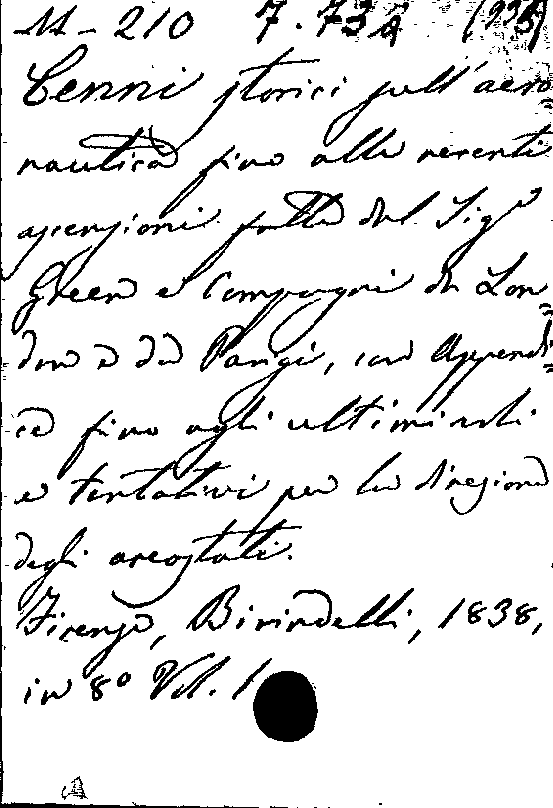 11 - 210 7.734
Cenni storici sull'aero=
nautica fino alle recenti
ascensioni fatte dal Sigʳ
Green e Compagni da Lon=
dra e da Parigi, con Appendi=
ce fino agli ultimi voli
e tentativi per la direzione
degli areostati.
Firenze, Birindelli, 1838,
in 8º Vol. 1